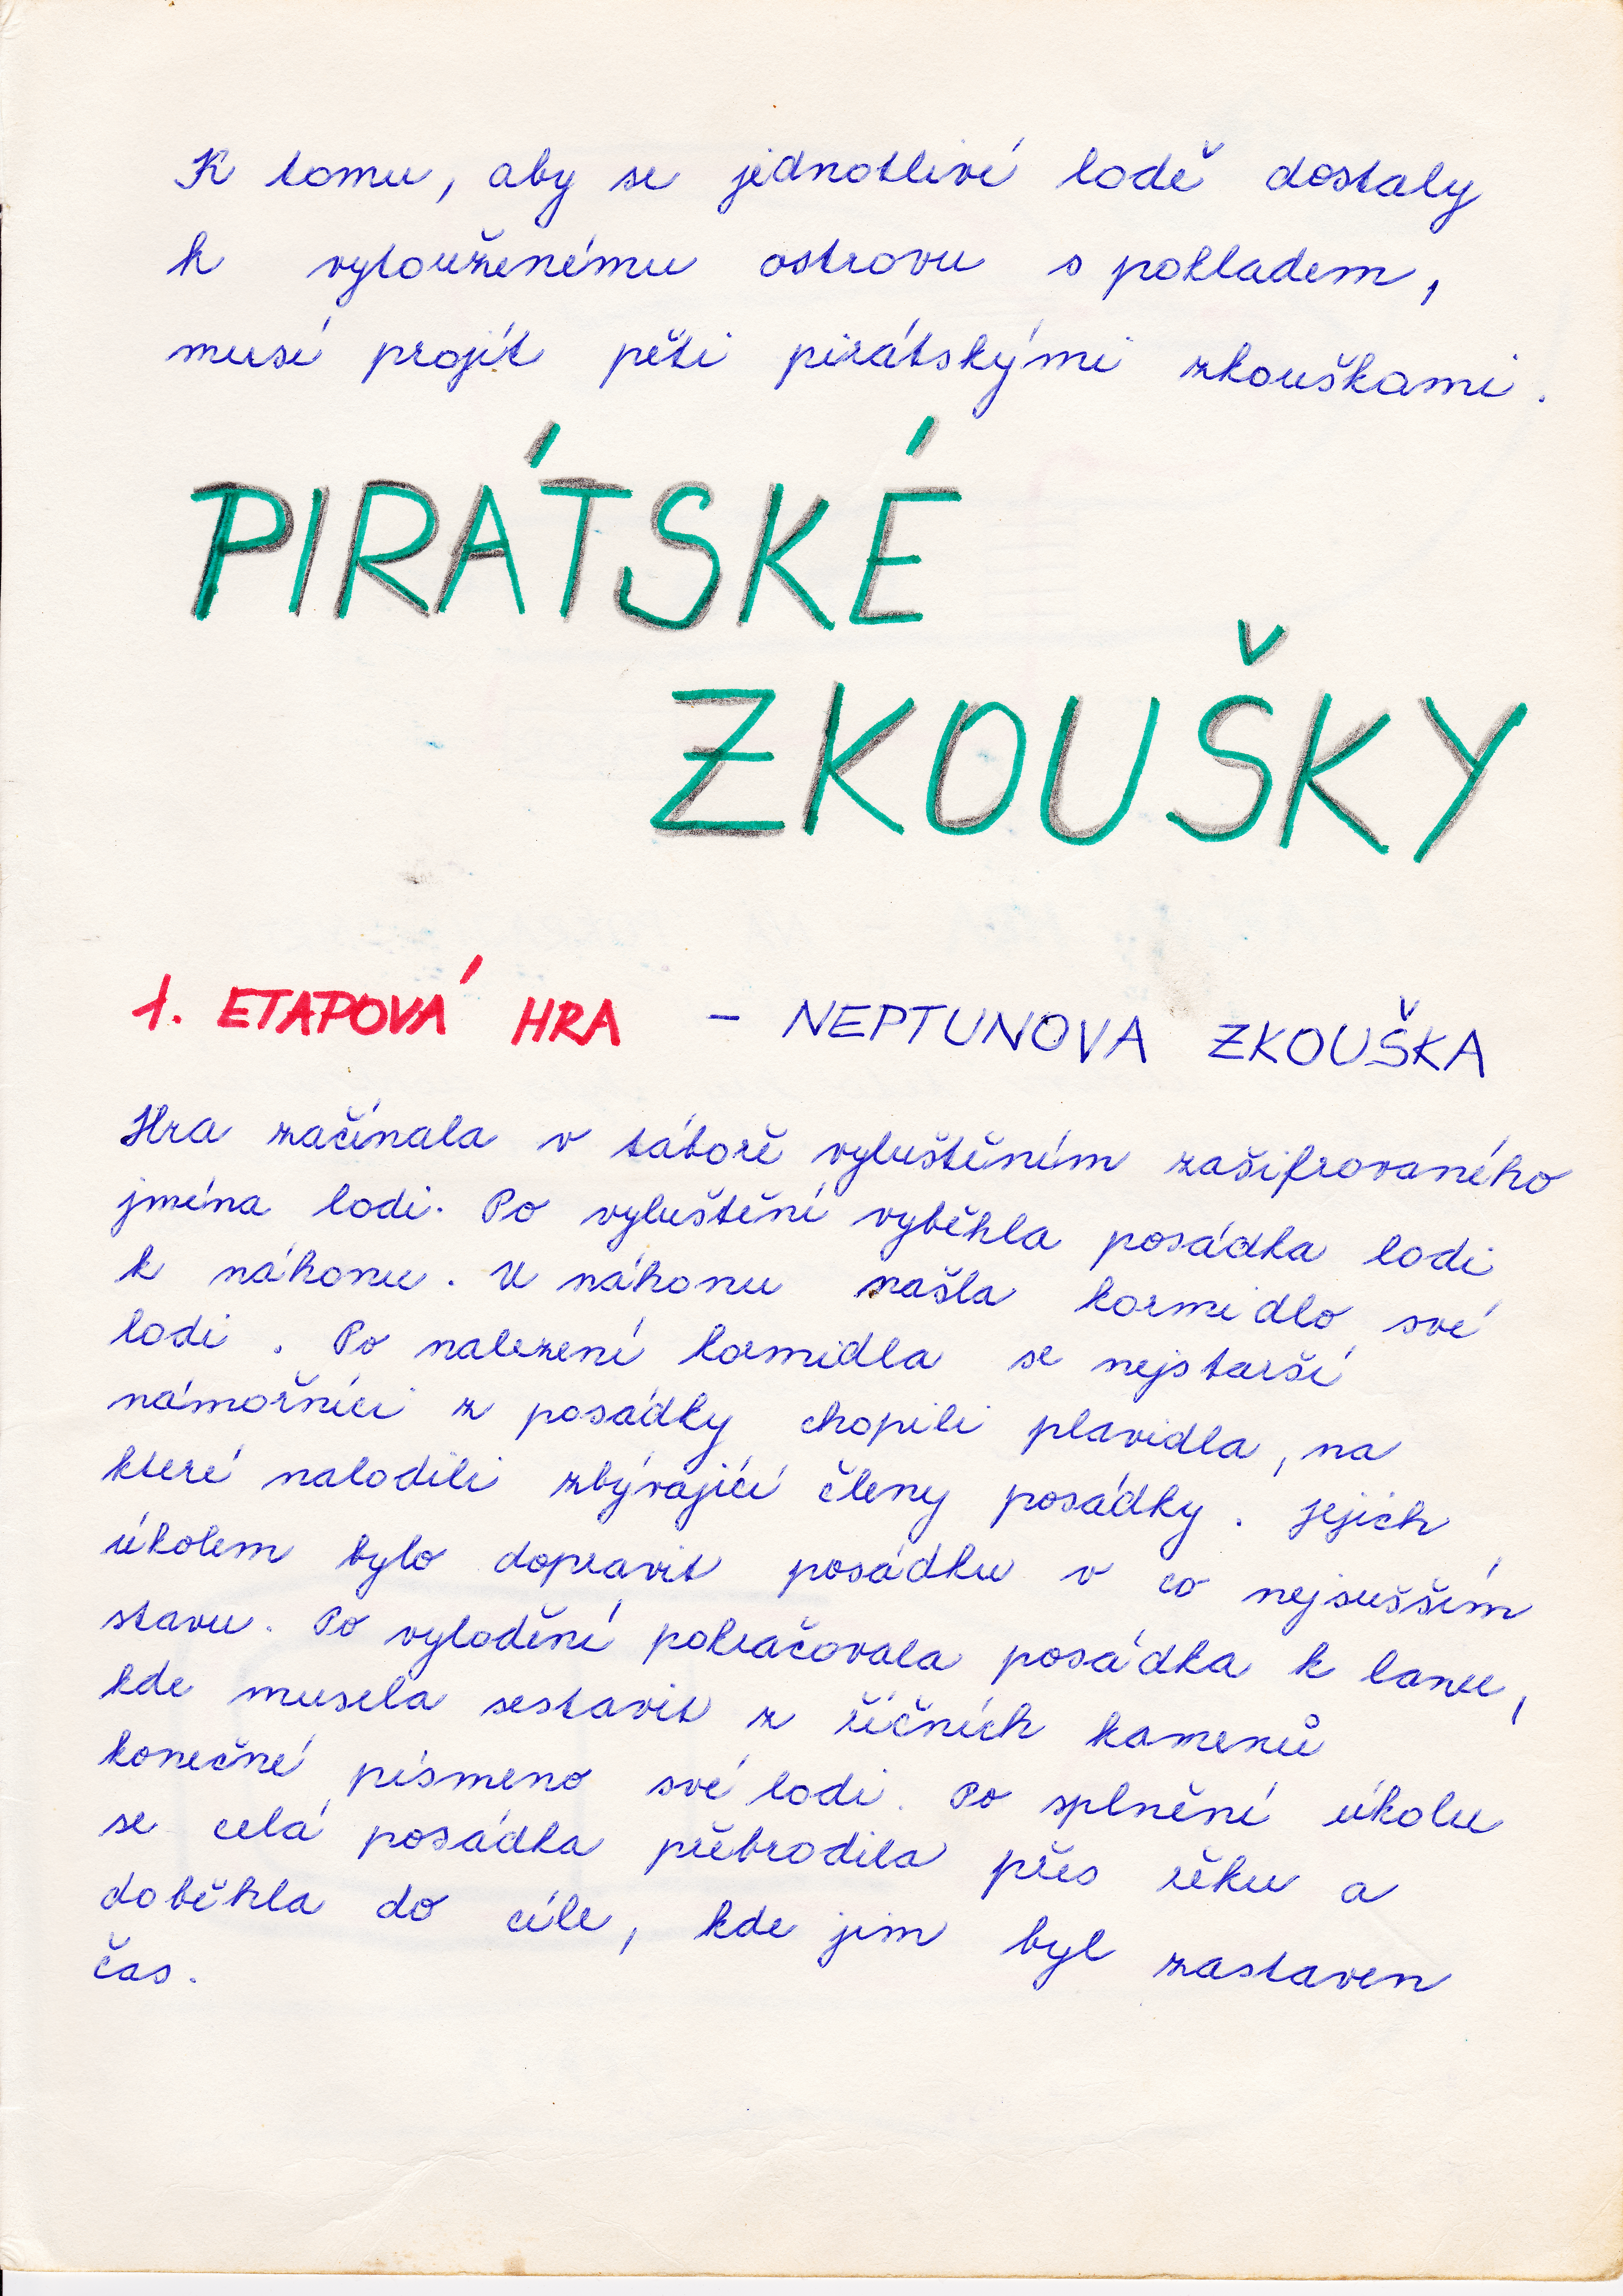 K tomu, aby se jednotlivé lodě dostaly
k vytouženému ostrovu s pokladem,
musí projít pěti pirátskými zkouškami.
PIRÁTSKÉ
ZKOUŠKY
1. ETAPOVÁ HRA - NEPTUNOVA ZKOUŠKA
Hra začínala v táboře vyluštěním zašifrovaného
jména lodi. Po vyluštění vyběhla posádka lodi
k náhonu. U náhonu našla kormidlo své
lodi. Po nalezení kormidla se nejstarší
námořníci z posádky chopili plavidla, na
které nalodili zbývající členy posádky. Jejich
úkolem bylo dopravit posádku v co nejsušším
stavu. Po vylodění pokračovala posádka k lanu,
kde musela sestavit z říčních kamenů
konečné písmeno své lodi. Po splnění úkolu
se celá posádka přebrodila přes řeku a
doběhla do cíle, kde jim byl zastaven
čas.